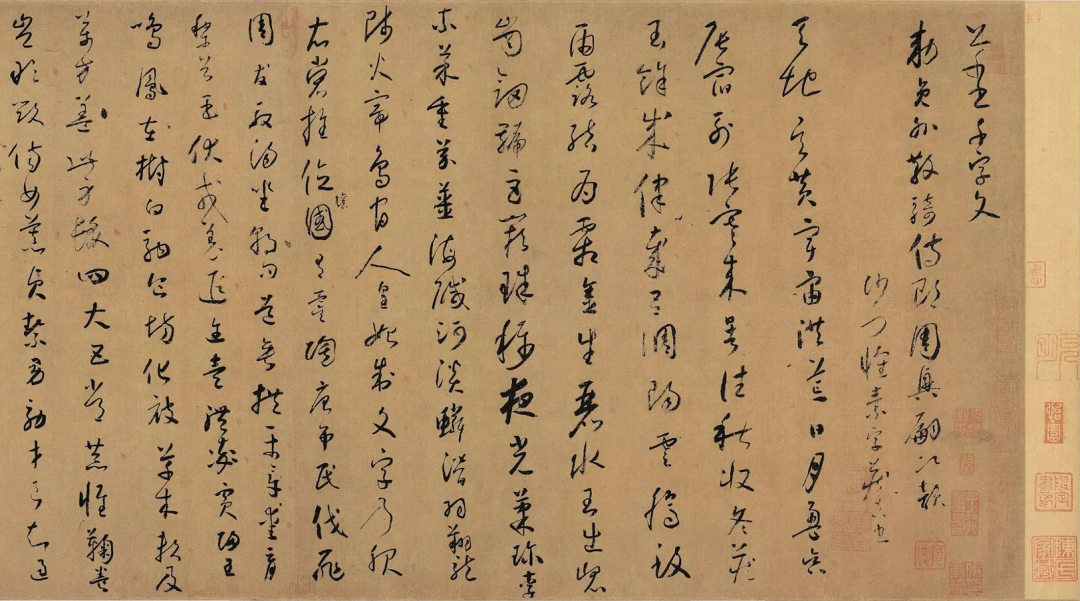 千字文
敕員外散騎侍郎周興嗣次韻
沙門懷素字藏真也
天地玄黃宇宙洪荒日月盈昃
辰宿列張寒來暑往秋收冬藏
閏餘成律歲呂調陽雲騰致
雨露結為霜金生麗水玉出崐
崗劍號巨闕珠稱夜光菓珍李
柰菜重芥薑海醎河淡鱗潛羽翔龍
師火帝鳥官人皇始制文字乃服
衣裳推位讓國有虞陶唐弔民伐罪
周發殷湯坐朝問道垂拱平章愛育
黎首臣伏戎羌遐迩壹體率賓歸王
鳴鳳在樹白駒食場化被草木賴及
萬方蓋此身髮四大五常恭惟鞠養
豈敢毀傷女慕貞絜男效才良知過